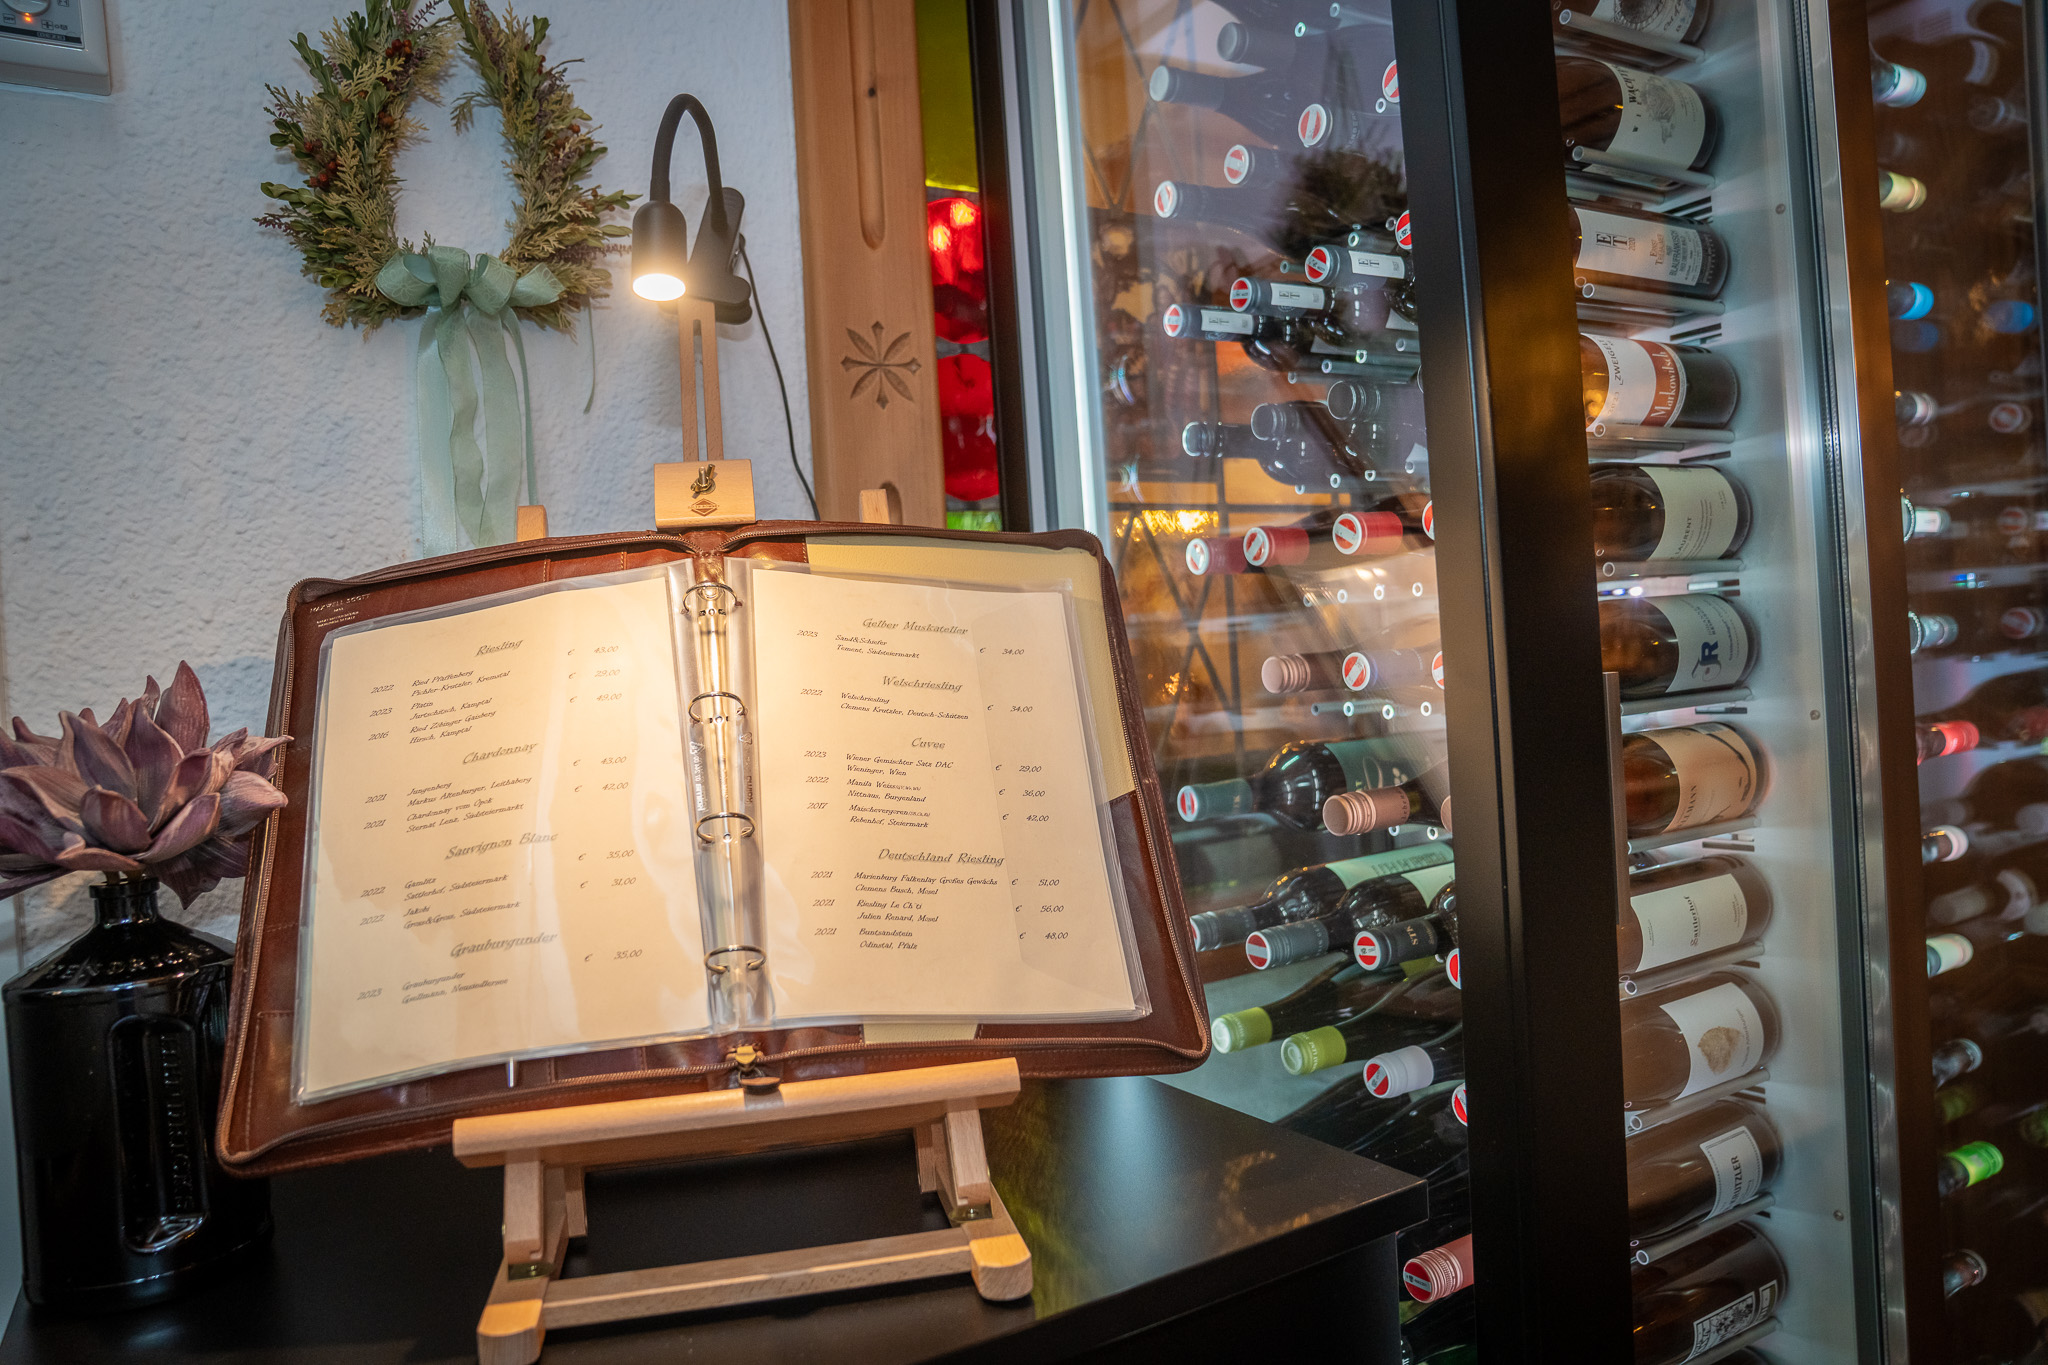 MAXWELL SCOTT
Riesling
€ 43,00
2022 Ried Pfaffenberg
Pichler-Krutzler, Kremstal
€ 29,00
2023 Platin
Jurtschitsch, Kamptal
€ 49,00
2016 Ried Zöbinger Gaisberg
Hirsch, Kamptal
Chardonnay
€ 43,00
2021 Jungenberg
Markus Altenburger, Leithaberg
€ 42,00
2021 Chardonnay vom Opok
Sternat Lenz, Südsteiermark
Sauvignon Blanc
€ 35,00
2022 Gamlitz
Sattlerhof, Südsteiermark
€ 31,00
2022 Jakobi
Gross&Gross, Südsteiermark
Grauburgunder
€ 35,00
2023 Grauburgunder
Neusiedlersee
Gelber Muskateller
2023 Sand&Schiefer € 34,00
Tement, Südsteiermark
Welschriesling
2022 Welschriesling
Clemens Krutzler, Deutsch-Schützen € 34,00
Cuvee
2023 Wiener Gemischter Satz DAC
Wieninger, Wien € 29,00
2022 Manila Weiss
Nittnaus, Burgenland € 36,00
2017 Maischevergoren
Rebenhof, Steiermark € 42,00
Deutschland Riesling
2021 Marienburg Falkenlay Großes Gewächs € 51,00
Clemens Busch, Mosel
2021 Riesling Le Ch'ti € 56,00
Julien Renard, Mosel
2021 Buntsandstein € 48,00
Odinstal, Pfalz
WACH
ET
2020
BLAUFRÄNKISCH
ZWEIGELT
Markowitsch
LAURENT
R
Sattlerhof
KRUTZLER